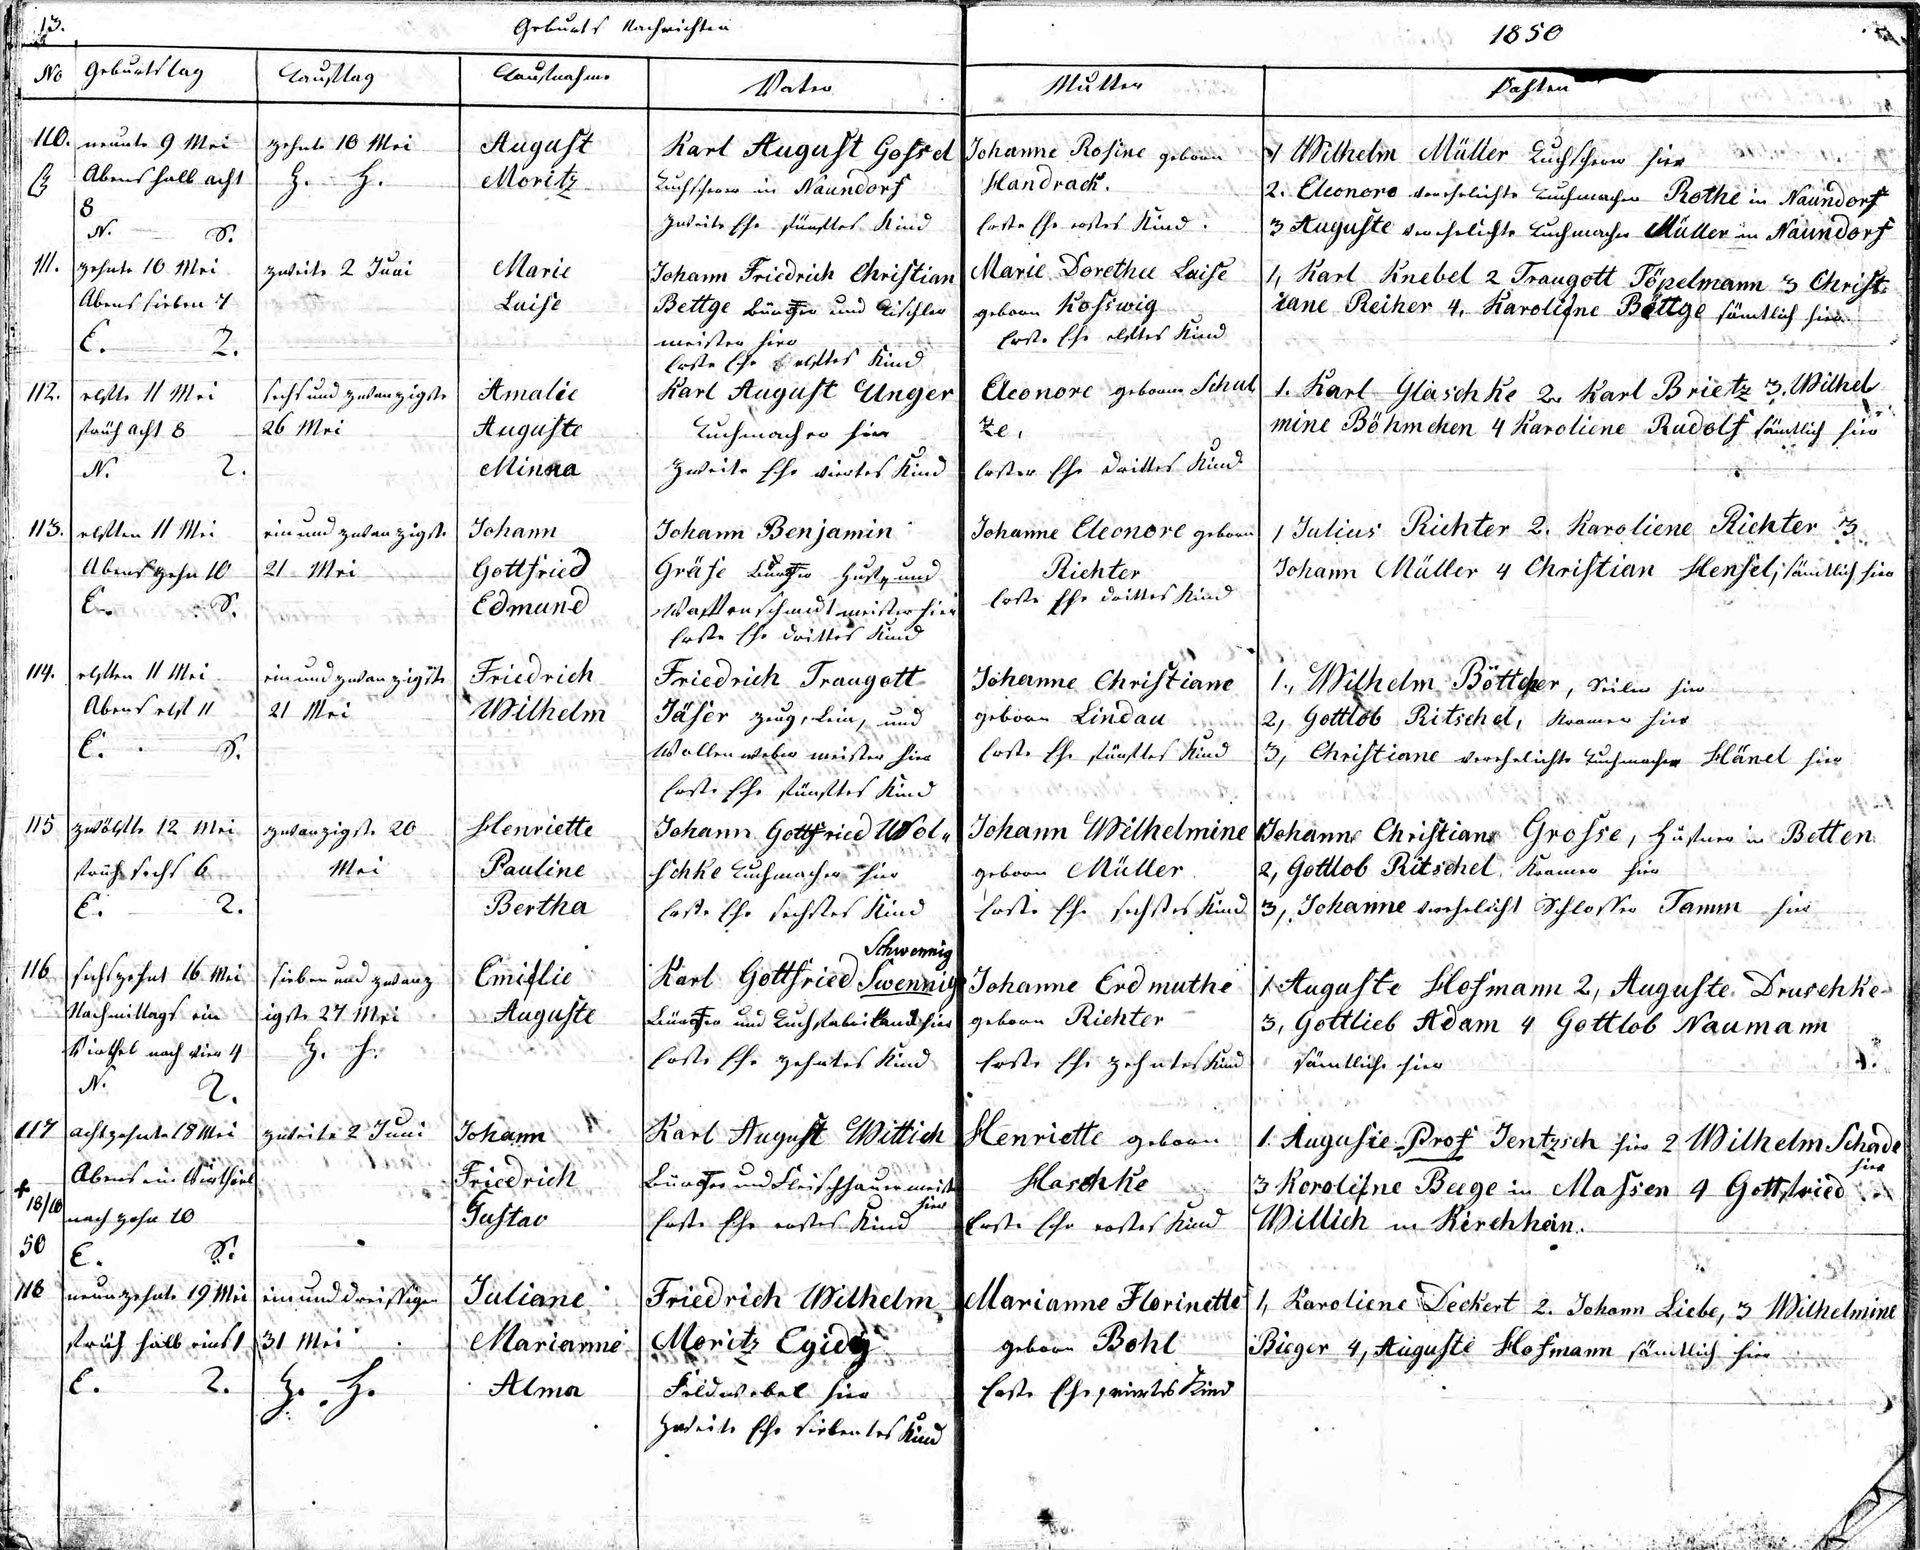 13.
Geburts Nachrichten
1850
No Geburtstag Tauftag Taufnahme Vater Mutter Pathen
110. neunte 9 Mei
Abens halb acht
8
N. S.
zehnte 10 Mei
H. H.
August
Moritz
Karl August Gossel
Tuchscherer in Naundorf
zweite Ehe fünftes Kind
Johanne Rosine geborn
Handrack.
Erste Ehe erstes Kind.
1 Wilhelm Müller Tuchscherer hier
2. Eleonore verehelichte Tuchmacher Rothe in Naundorf
3 Auguste verehelichte Tuchmacher Müller in Naundorf
111. zehnte 10 Mei
Abens sieben 7
E. T.
zweite 2 Juni
Marie
Luise
Johann Friedrich Christian
Bettge Bürger und Tischler
meister hier
Erste Ehe elftes Kind
Marie Dorothee Luise
geborn Kosswig
Erste Ehe elftes Kind
1, Karl Knebel 2 Traugott Töpelmann 3 Christ
iane Reiher 4, Karoline Böttge sämtlich hier
112. elfte 11 Mei
früh acht 8
N. T.
sechs und zwanzigste
26 Mei
Amalie
Auguste
Minna
Karl August Unger
Tuchmacher hier
zweite Ehe viertes Kind
Eleonore geborn Schul
ze,
Erster Ehe drittes Kind
1. Karl Glaschke 2. Karl Brietz 3. Wilhel
mine Böhmchen 4 Karoliene Rudolf sämtlich hier
113. elften 11 Mei
Abens zehn 10
E. S.
ein und zwanzigste
21 Mei
Johann
Gottfried
Edmund
Johann Benjamin
Gräfe Bürger Huf, und
Waffenschmidtmeister hier
Erste Ehe drittes Kind
Johanne Eleonore geborn
Richter
Erste Ehe drittes Kind
1 Julius Richter 2. Karoliene Richter 3
Johann Müller 4 Christian Hensel, sämtlich hier
114. elften 11 Mei
Abens elf 11
E. S.
ein und zwanzigste
21 Mei
Friedrich
Wilhelm
Friedrich Traugott
Jäser zeug, Lein, und
Wollen weber meister hier
Erste Ehe fünftes Kind
Johanne Christiane
geborn Lindau
Erste Ehe fünftes Kind
1., Wilhelm Böttcher, Seiler hier
2, Gottlob Ritschel, Kramer hier
3, Christiane verehelichte Tuchmacher Hänel hier
115 zwölfte 12 Mei
früh sechs 6
E. T.
zwanzigste 20
Mei
Henriette
Pauline
Bertha
Johann Gottfried Wol-
schke Tuchmacher hier
Erste Ehe sechstes Kind
Johann Wilhelmine
geborn Müller
Erste Ehe sechstes Kind
Johanne Christiane Grosse, Hüfner in Betten
2, Gottlob Ritschel, Kramer hier
3, Johanne verehelicht Schlosser Tamm hier
116 sechszehnt 16 Mei
Nachmittags ein
Virthel nach vier 4
N. T.
sieben und zwanz
igste 27 Mei
H. H.
Emilie
Auguste
Schwennig
Karl Gottfried Swennig
Bürger und Tuchfabrikand hier
Erste Ehe zehntes Kind
Johanne Erdmuthe
geborn Richter
Erste Ehe zehntes Kind
1 Auguste Hofmann 2, Auguste Druschke
3, Gottlieb Adam 4 Gottlob Naumann
sämtliche hier
117 achtzehnte 18 Mei
Abens ein Virthel
nach zehn 10
E. S.
+
18/10
50
zweite 2 Juni
Johann
Friedrich
Gustav
Karl August Wittich
Bürger und Fleischhauermeister
hier
Erste Ehe erstes Kind
Henriette geborn
Haschke
Erste Ehe erstes Kind
1. Auguste Prof Jentzsch hier 2 Wilhelm Schade
hier
3 Karoline Buge in Massen 4 Gottfried
Willich in Kirchhain.
118 neunzehnte 19 Mei
früh halb eins 1
E. T.
ein und dreissigen
31 Mei
H. H.
Juliane
Marianne
Alma
Friedrich Wilhelm
Moritz Egidy
Feldwebel hier
zweite Ehe siebentes Kind
Marianne Florinette
geborn Bohl
Erste Ehe, viertes Kind
1, Karoliene Deckert 2. Johann Liebe, 3 Wilhelmine
Bieger 4, Auguste Hofmann sämtlich hier